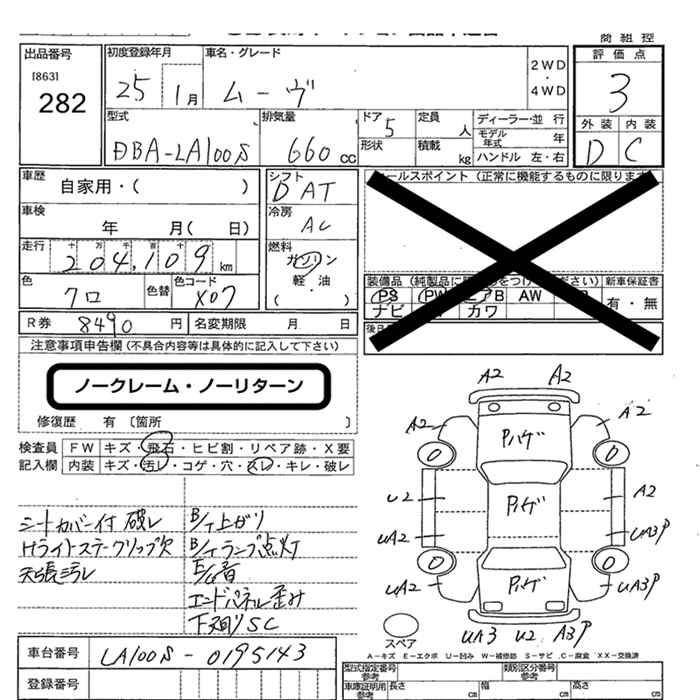 商組控
出品番号
[863]
282
初度登録年月
25 1月
車名・グレード
ムーヴ
2WD
・
4WD
評価点
3
外装 内装
D C
型式
DBA-LA100S
排気量
660 cc
ドア
5
形状
定員
人
積載
kg
ディーラー・並行
モデル年式 年
ハンドル 左・右
車歴
自家用・( )
車検
年 月( 日)
走行
十 万 千 百 十
204,109 km
色
クロ
色替
色コード
X07
シフト
D AT
冷房
AC
燃料
ガソリン
軽油
( )
セールスポイント (正常に機能するものに限ります
装備品 (純製品に をつけ ださい)
新車保証書
PS PW エアB AW
ナビ カワ
有・無
後日
R券 8490 円 名変期限 月 日
注意事項申告欄 (不具合内容等は具体的に記入して下さい)
ノークレーム・ノーリターン
修復歴 有 〔箇所 〕
検査員
記入欄
FW キズ・飛石・ヒビ割・リペア跡・X要
内装 キズ・汚レ・コゲ・穴・スレ・キレ・破レ
シートカバー付 破レ
Hライトステークリップ欠
天張汚レ
B/T上ガリ
B/Tランプ点灯
E/G音
エンドパネル歪み
下廻りSC
A2 A2
A2 A2
Pハゲ
O O
U2 A2
Pハゲ
UA2 UA3P
O O
UA2 UA3P
Pハゲ
スペア
UA3 U2 A3P
A-キズ E-エクボ U-凹み W-補修跡 S-サビ C-腐食 XX-交換済
車台番号 LA100S-0195143
登録番号
型式指定番号
参考
類別区分番号
参考
車庫証明用
参考
長さ cm 幅 cm 高さ cm